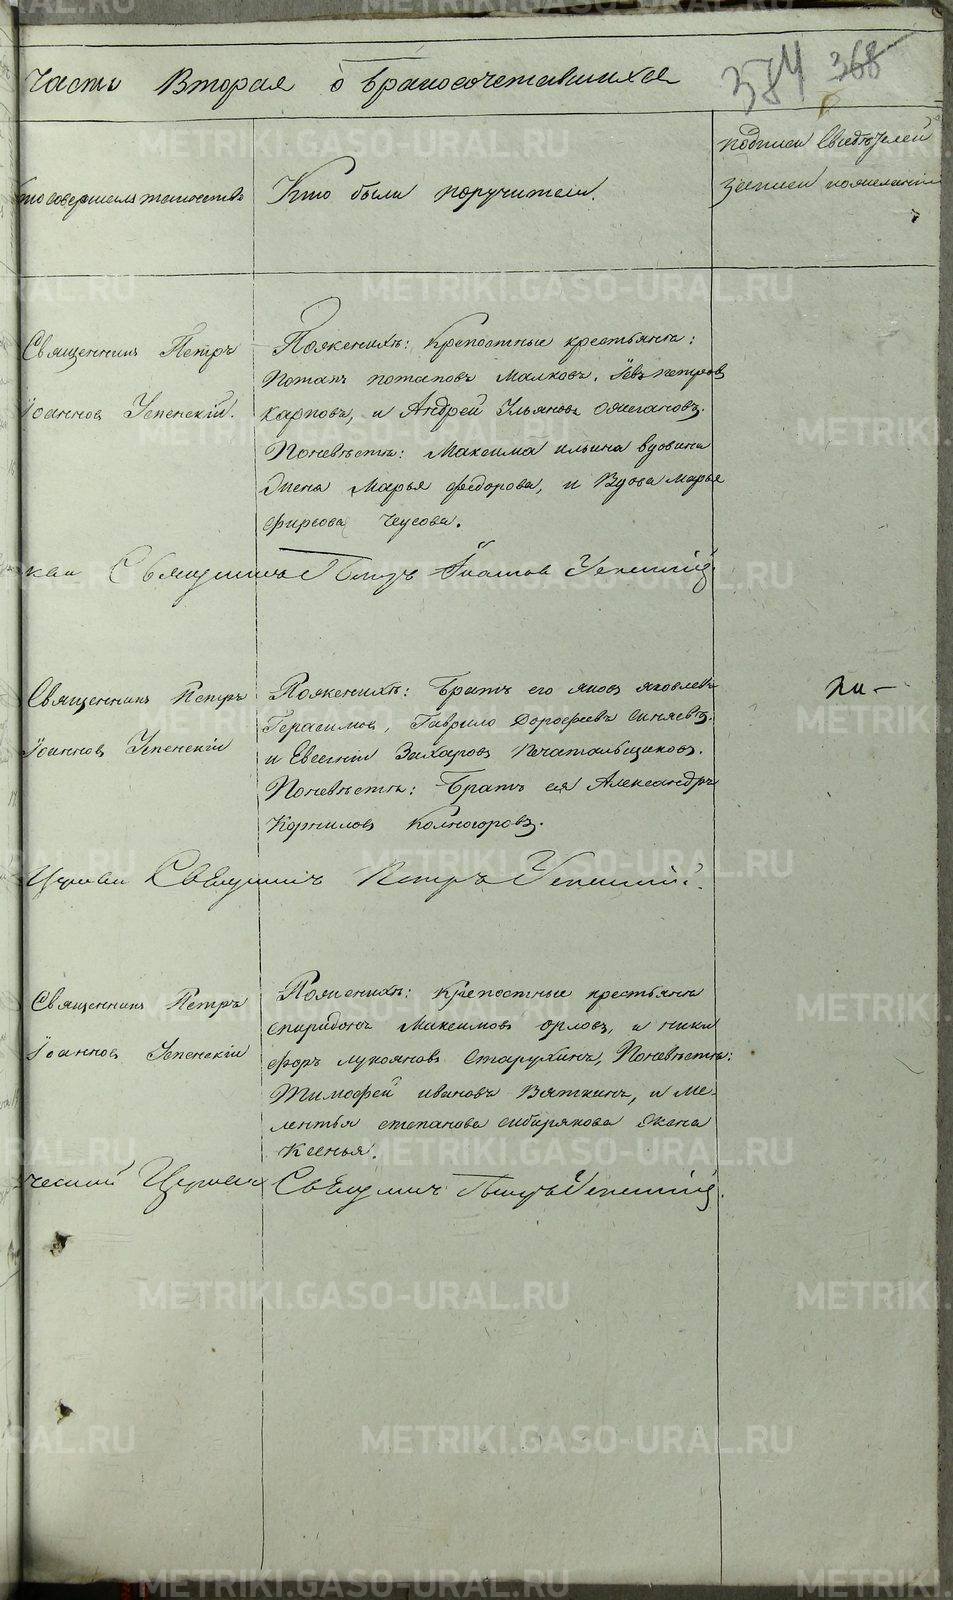 Часть Вторая о бракосочетавшихся
384 368
Кто совершилъ таинство
Кто были поручители.
подписи Свидѣтелей
записи по желанію
Священникъ Петръ
Іоанновъ Успенскій.
По женихѣ: Крепостные крестьяна:
Потапъ потаповъ Малковъ, Левъ петровъ
Карповъ, и Андрей Ульяновъ Ожегановъ.
По невѣстѣ: Максима ильина вдовина
Жена Марья федорова, и Вдова марья
фирсова Чеусова.
кви Священникъ Петръ Іоанновъ Успенскій.
Священникъ Петръ
Іоанновъ Успенскій
По женихѣ: Братъ его яковъ яковлевъ
Герасимовъ, Гаврило Дорофѣевъ Синяевъ.
и Евсегній Захаровъ Печатальщиковъ.
По невѣстѣ: Братъ ея Александръ
Корниловъ Колногоровъ.
Церкви Священникъ Петръ Успенскій.
Священникъ Петръ
Іоанновъ Успенскій
По женихѣ: крепостные крестьяна
спиридонъ Максимовъ орловъ, и ники
форъ лукояновъ Старухинъ, По невѣстѣ:
Тимофей ивановъ Вяткинъ, и Ме-
лентья степанова сибирякова Жена
Ксенья.
ческой Церкви Священникъ Петръ Успенскій.
METRIKI.GASO-URAL.RU